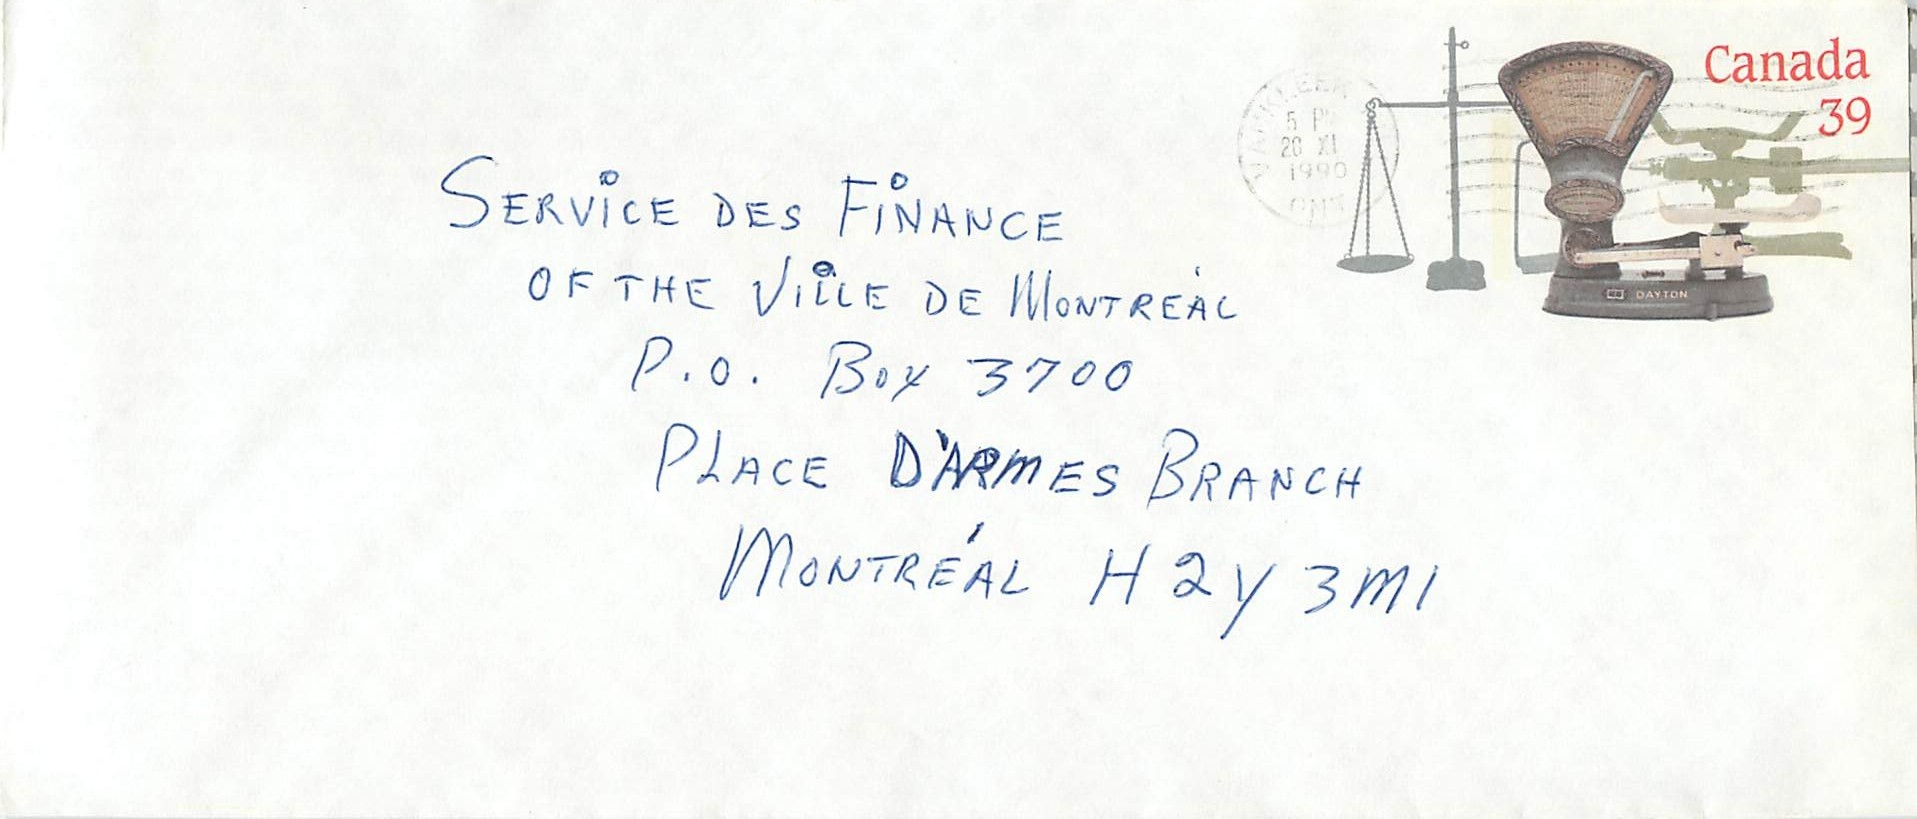 Canada
39
VANKLEEK
5 PM
20 XI
1990
ONT
SERVICE DES FINANCE
OF THE VILLE DE MONTREAL
P.O. BOX 3700
PLACE D'ARMES BRANCH
MONTRÉAL H2Y 3M1
DAYTON